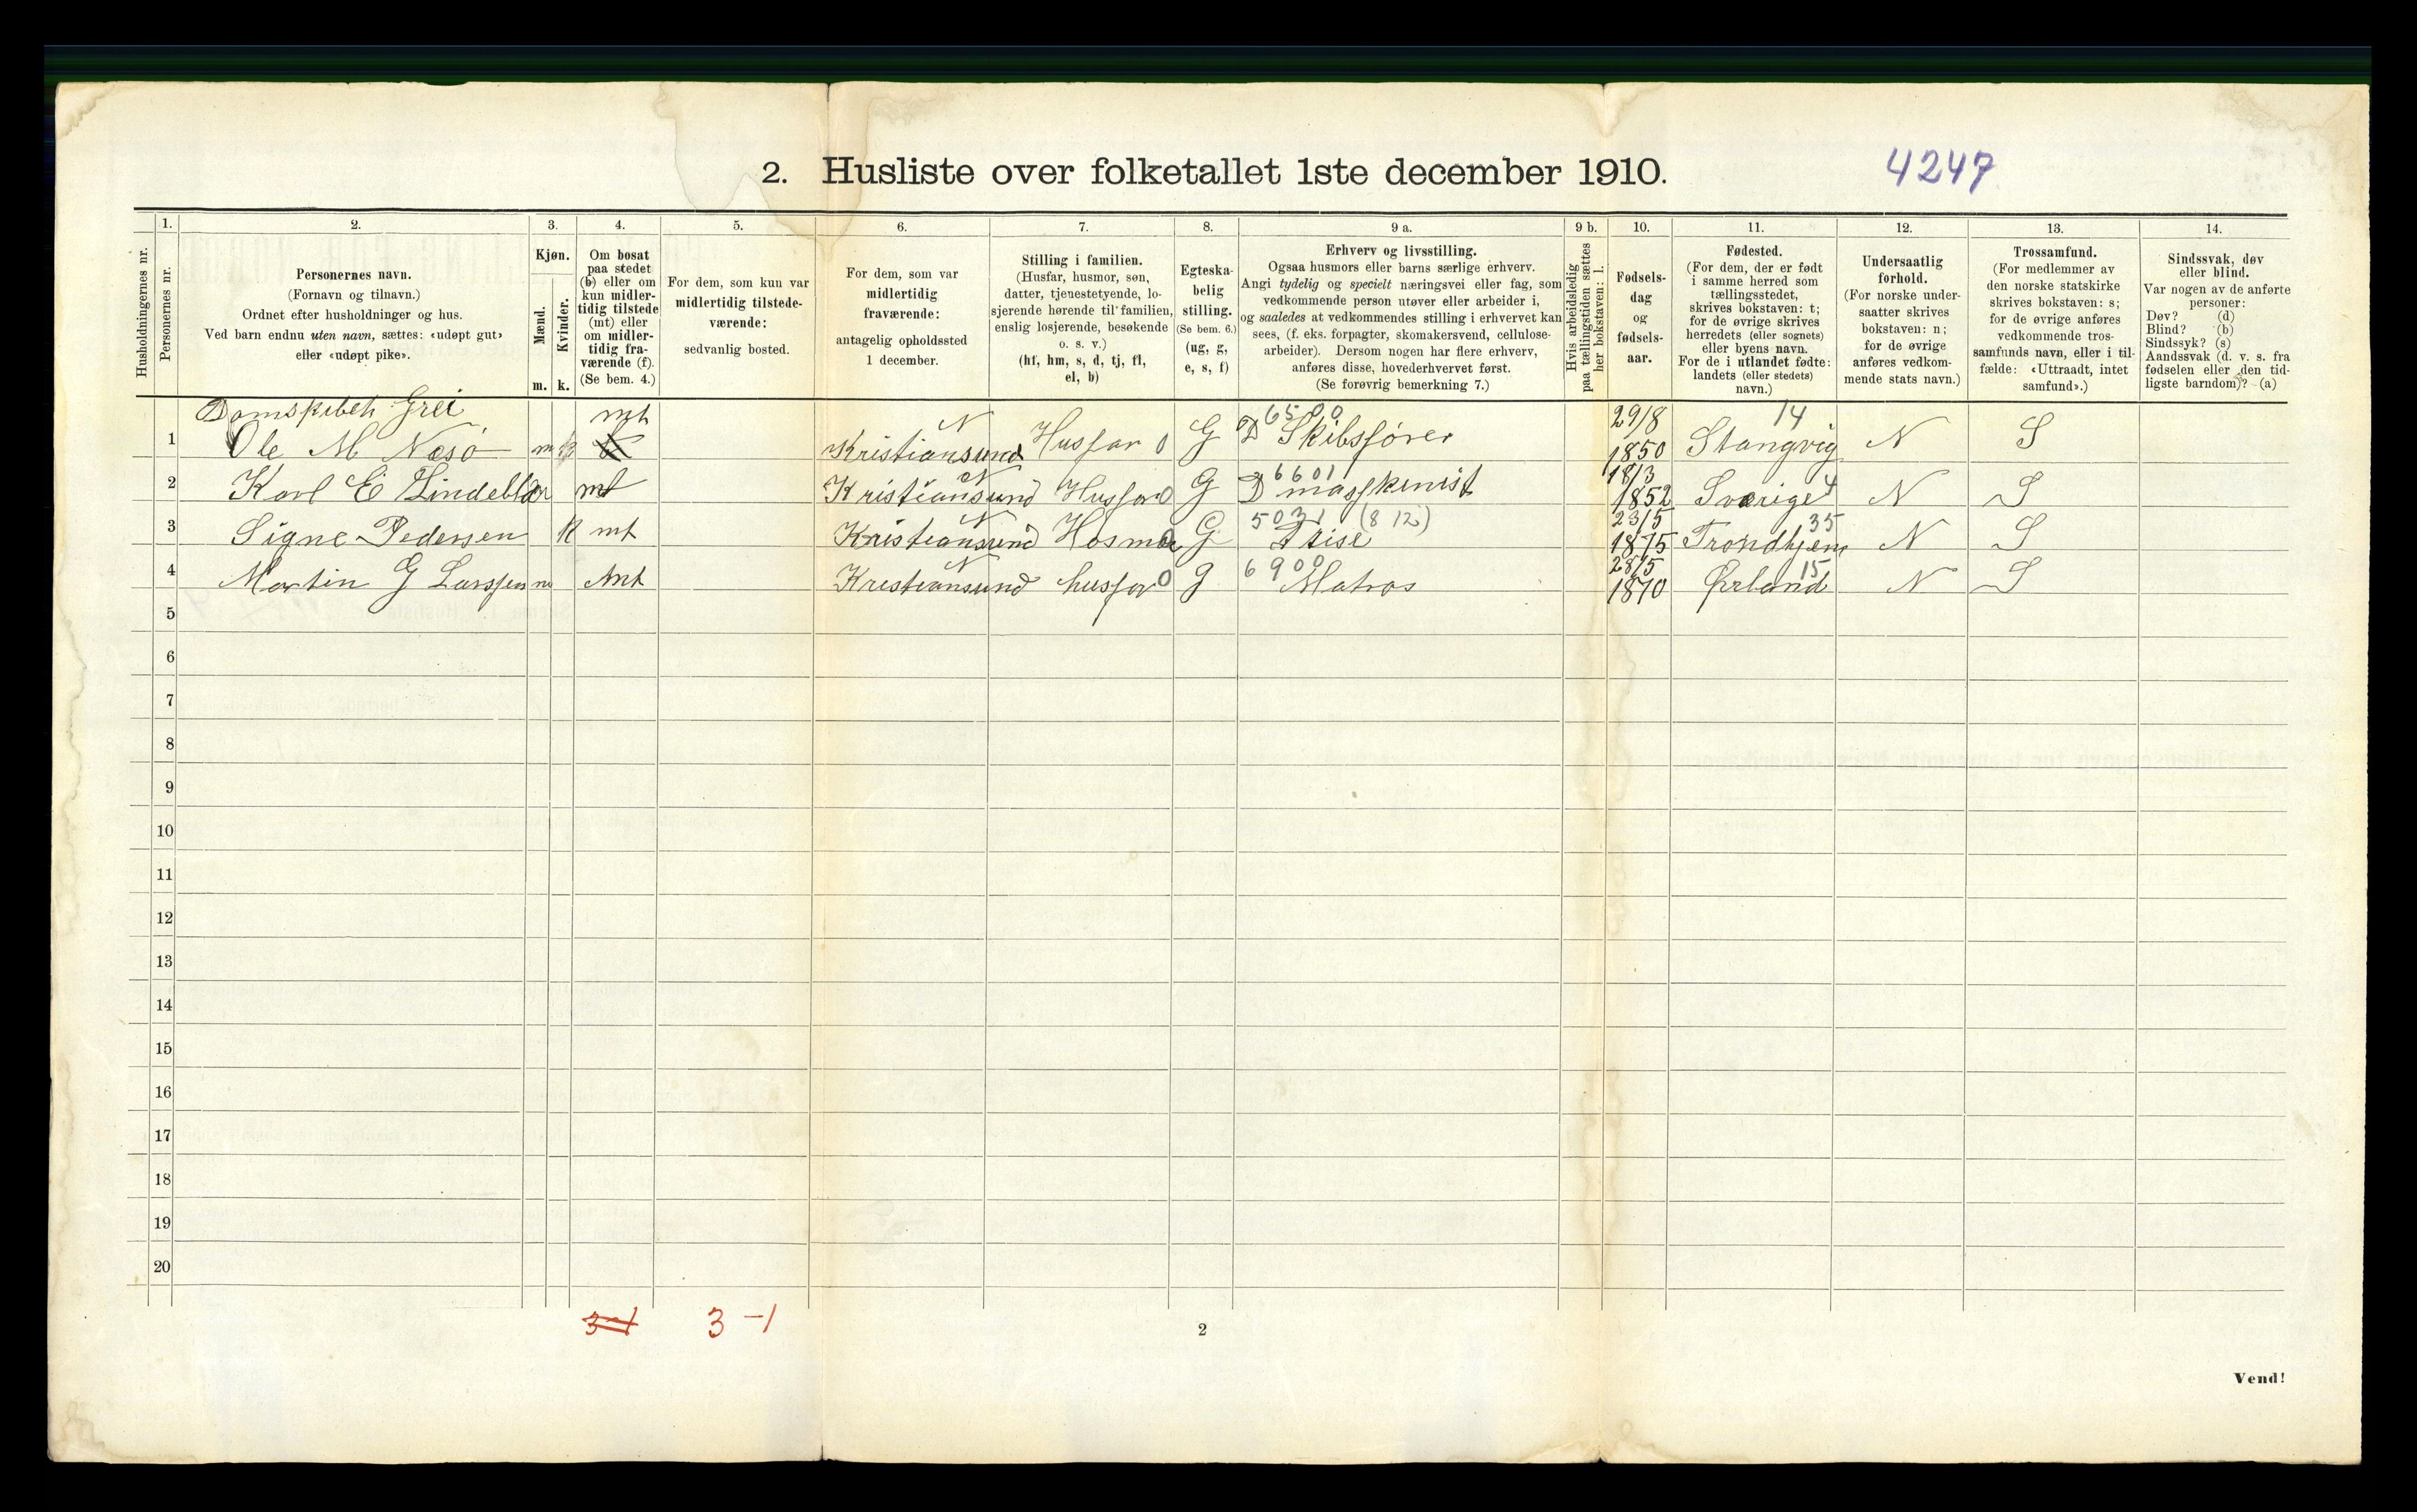 2. Husliste over folketallet 1ste december 1910.
4247
1. 2. 3. 4. 5. 6. 7. 8. 9 a. 9 b. 10. 11. 12. 13. 14.
Husholdningernes nr.
Personernes nr.
Personernes navn.
(Fornavn og tilnavn.)
Ordnet efter husholdninger og hus.
Ved barn endnu uten navn, sættes: «udøpt gut»
eller «udøpt pike».
Kjøn.
Mænd.
Kvinder.
m. k.
Om bosat
paa stedet
(b) eller om
kun midler-
tidig tilstede
(mt) eller
om midler-
tidig fra-
værende (f).
(Se bem. 4.)
For dem, som kun var
midlertidig tilstede-
værende:
sedvanlig bosted.
For dem, som var
midlertidig
fraværende:
antagelig opholdssted
1 december.
Stilling i familien.
(Husfar, husmor, søn,
datter, tjenestetyende, lo-
sjerende hørende til familien,
enslig losjerende, besøkende
o. s. v.)
(hf, hm, s, d, tj, fl,
el, b)
Egteska-
belig
stilling.
(Se bem. 6.)
(ug, g,
e, s, f)
Erhverv og livsstilling.
Ogsaa husmors eller barns særlige erhverv.
Angi tydelig og specielt næringsvei eller fag, som
vedkommende person utøver eller arbeider i,
og saaledes at vedkommendes stilling i erhvervet kan
sees, (f. eks. forpagter, skomakersvend, cellulose-
arbeider). Dersom nogen har flere erhverv,
anføres disse, hovederhvervet først.
(Se forøvrig bemerkning 7.)
Hvis arbeidsledig
paa tællingstiden sættes
her bokstaven: l.
Fødsels-
dag
og
fødsels-
aar.
Fødested.
(For dem, der er født
i samme herred som
tællingsstedet,
skrives bokstaven: t;
for de øvrige skrives
herredets (eller sognets)
eller byens navn.
For de i utlandet fødte:
landets (eller stedets)
navn.)
Undersaatlig
forhold.
(For norske under-
saatter skrives
bokstaven: n;
for de øvrige
anføres vedkom-
mende stats navn.)
Trossamfund.
(For medlemmer av
den norske statskirke
skrives bokstaven: s;
for de øvrige anføres
vedkommende tros-
samfunds navn, eller i til-
fælde: «Uttraadt, intet
samfund».)
Sindssvak, døv
eller blind.
Var nogen av de anførte
personer:
Døv? (d)
Blind? (b)
Sindssyk? (s)
Aandssvak (d. v. s. fra
fødselen eller den tid-
ligste barndom)? (a)
Damskibet Grei mt N 6500 29/8 14
1 Ole M Næsø m Kristiansund Husfar 0 G D Skibsfører 1850 Stangvig N S
N 6601 18/3 4
2 Karl E m mt Kristiansund Husfar 0 G D masskinist 1852 Sverige N S
N 5031 (8 12) 23/5 35
3 Signe Pedersen k mt Kristiansund G 1875 Trondhjem N S
N 6900 28/5 15
4 Martin G Larssen m mt Kristiansund husfar 0 g Matros 1870 Ørland N S
5
6
7
8
9
10
11
12
13
14
15
16
17
18
19
20
3-1 3 -1
2
Vend!